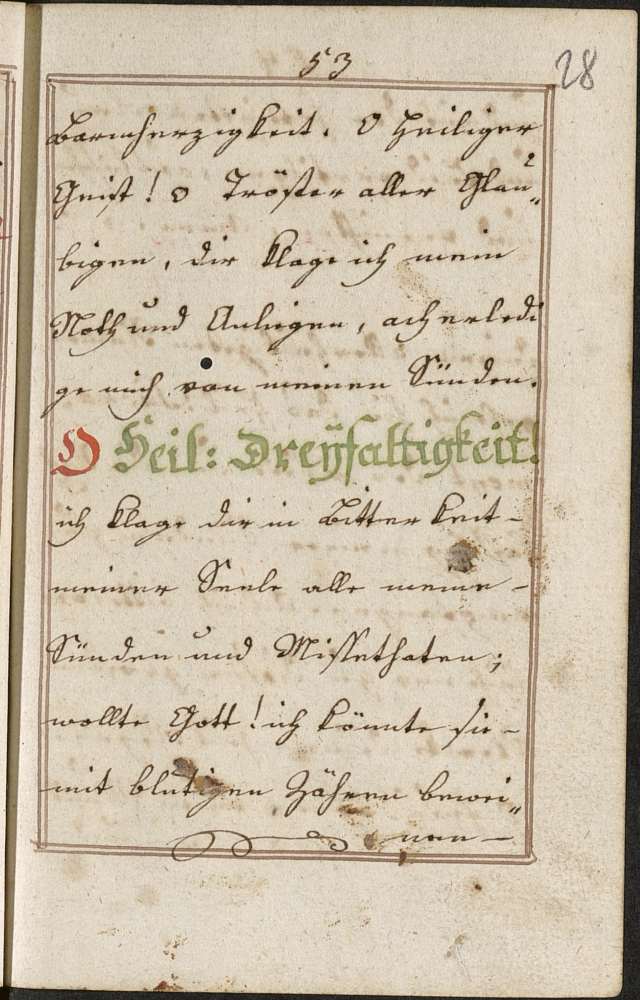 53
28
Barmherzigkeit. O Heiliger
Geist! o Tröster aller Glau„
bigen, dir klage ich mein
Noth und Anligen, ach erledi
ge mich von meinen Sünden.
O Heil: Dreÿfaltigkeit!
ich klage dir in Bitterkeit-
meiner Seele alle meine-
Sünden und Missethaten;
wollte Gott! ich könnte sie-
mit blutigen Zähren bewei„
nen-